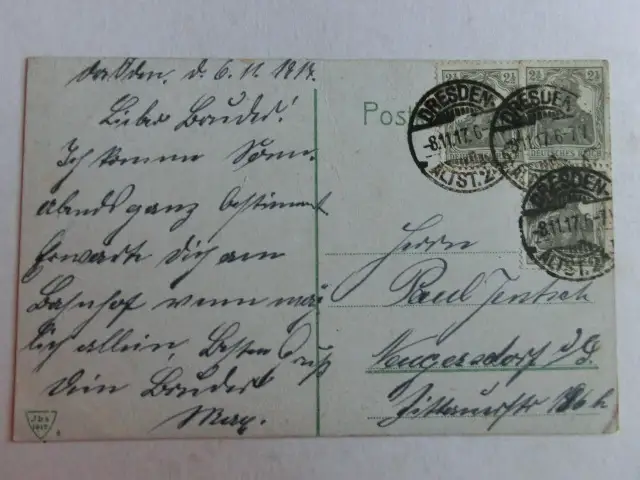 Dresden, d. 6.11.1917.
Lieber Bruder!
Ich komme Sonn-
abend ganz bestimmt
Erwarte Dich am
Bahnhof wenn mög
lich allein, Besten Gruß
Dein Bruder
Max.
Post
2½ 2½
DRESDEN-
-8.11.17.6-7
ALTST.24
DRESDEN-
8.11.17.6-7
ALTST.24
DEUTSCHES REICH
DRESDEN-
-8.11.17.6-7
ALTST.24
Herrn
Paul Jentsch
Neugersdorf i/S.
Zittauerstr
1917